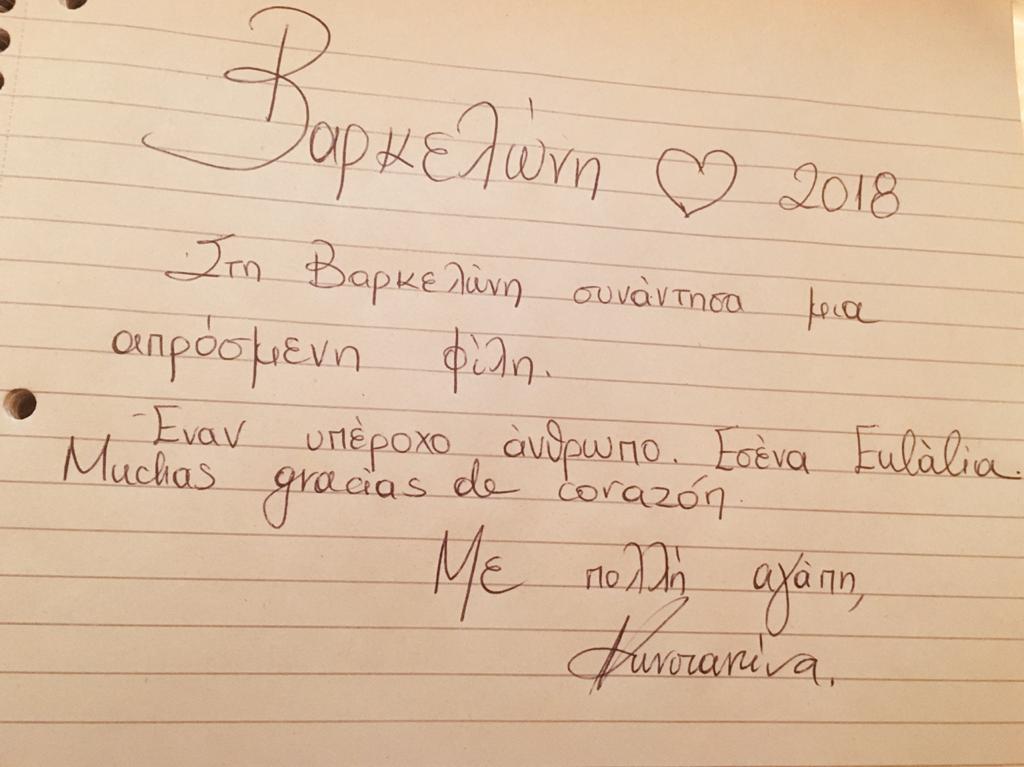 Βαρκελώνη ♡ 2018
Στη Βαρκελώνη συνάντησα μια
απρόσμενη φίλη.
Έναν υπέροχο άνθρωπο. Εσένα Eulàlia.
Muchas gracias de corazón.
Με πολλή αγάπη,
Κωνσταντίνα.